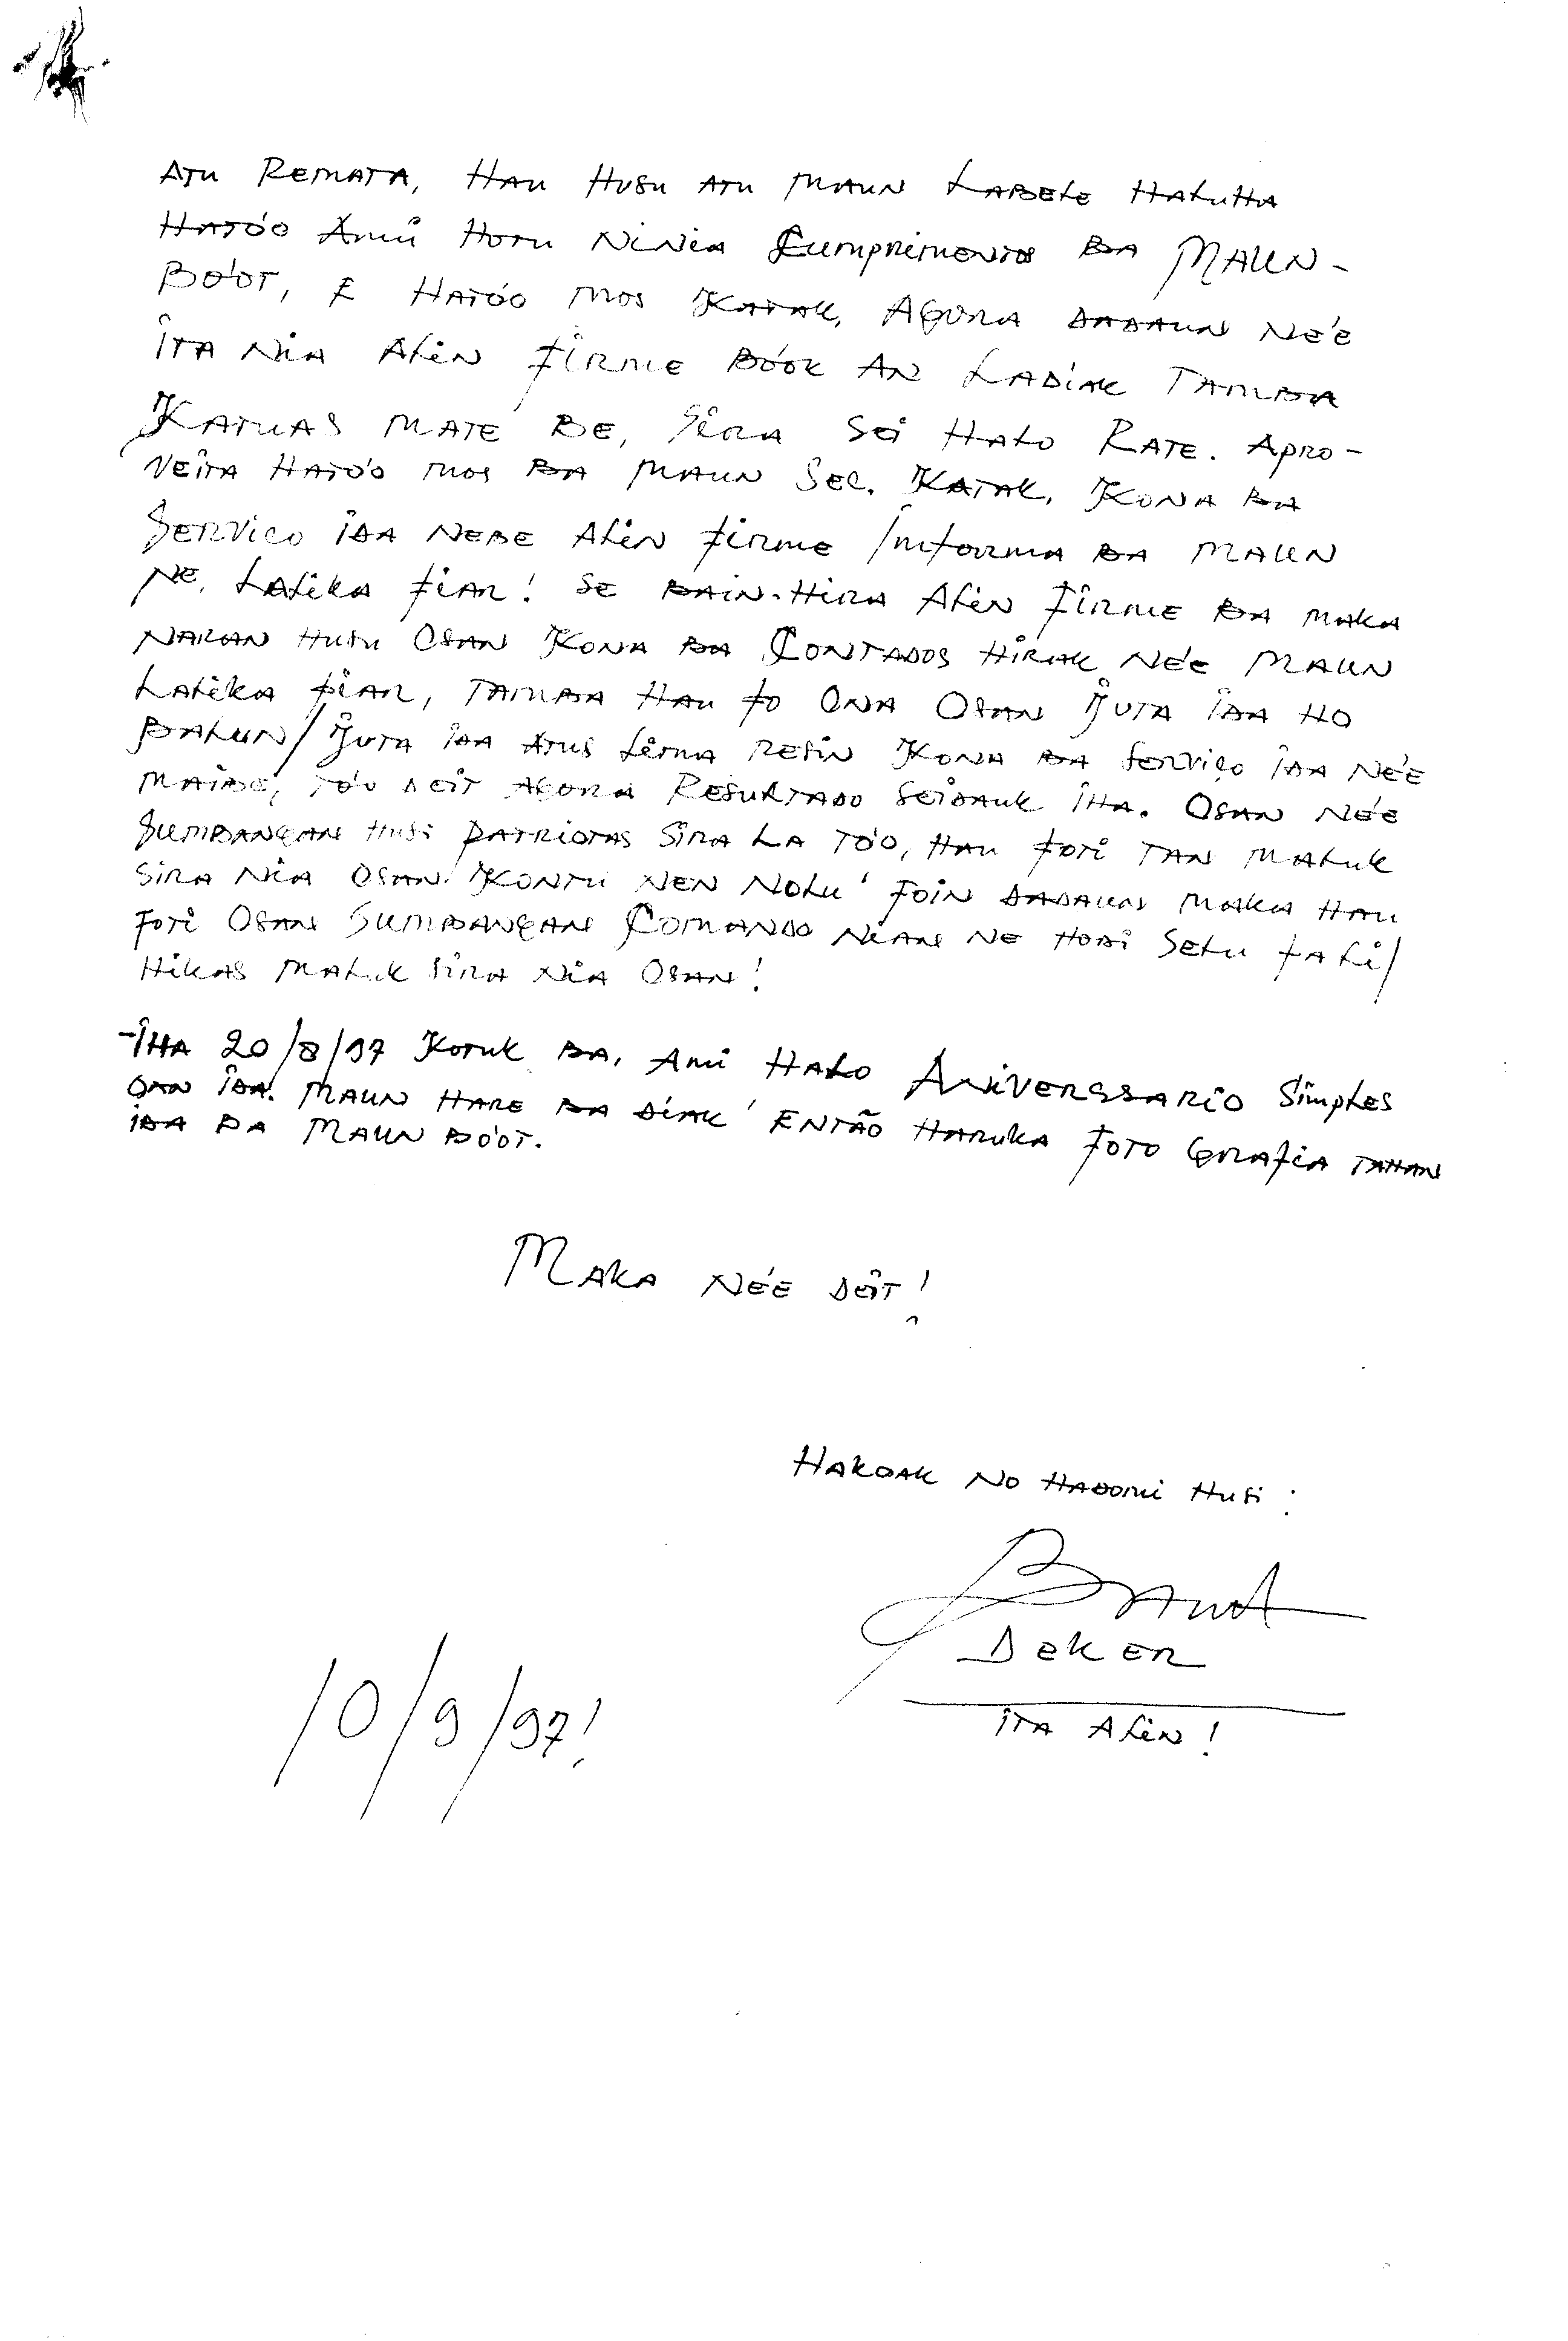 Atu remata, Hau husu atu Maun labele haluha
ható'o Ami hotu ninia Cumprimentos ba Maun-
Bo'ot, e ható'o mos katak, Agora dadaun né'e
ita nia Alin Firme bóok an ladiak tamba
Katuas mate be, sira sei halo rate. Apro-
veita ható'o mos ba Maun Sec. katak, kona ba
Serviço ida nebe Alin Firme informa ba Maun
ne, lalika fiar! Se bain-hira Alin Firme ba maka
naran husu osan kona ba Contados hirak né'e Maun
lalika fiar, tamba Hau fo ona osan juta ida ho
balun/juta ida atus lima resin kona ba Serviço ida né'e
maibé, tó'o deit agora Resultado seidauk iha. Osan né'e
sumbangan husi patriotas sira la tó'o, Hau foti tan maluk
sira nia osan. Kontu nen nolu' foin dadauns maka Hau
foti osan sumbangan Comando nian ne hodi selu fali/
hikas maluk sira nia osan!
-Iha 20/8/97 kotuk ba, Ami halo Aniverssario Simples
oan ida. Maun hare ba diak' Então haruka fotografia tahan
ida ba Maun Bóot.
Maka né'e deit!
Hakoak no hadomi husi:
Deker
Ita Alin!
10/9/97!